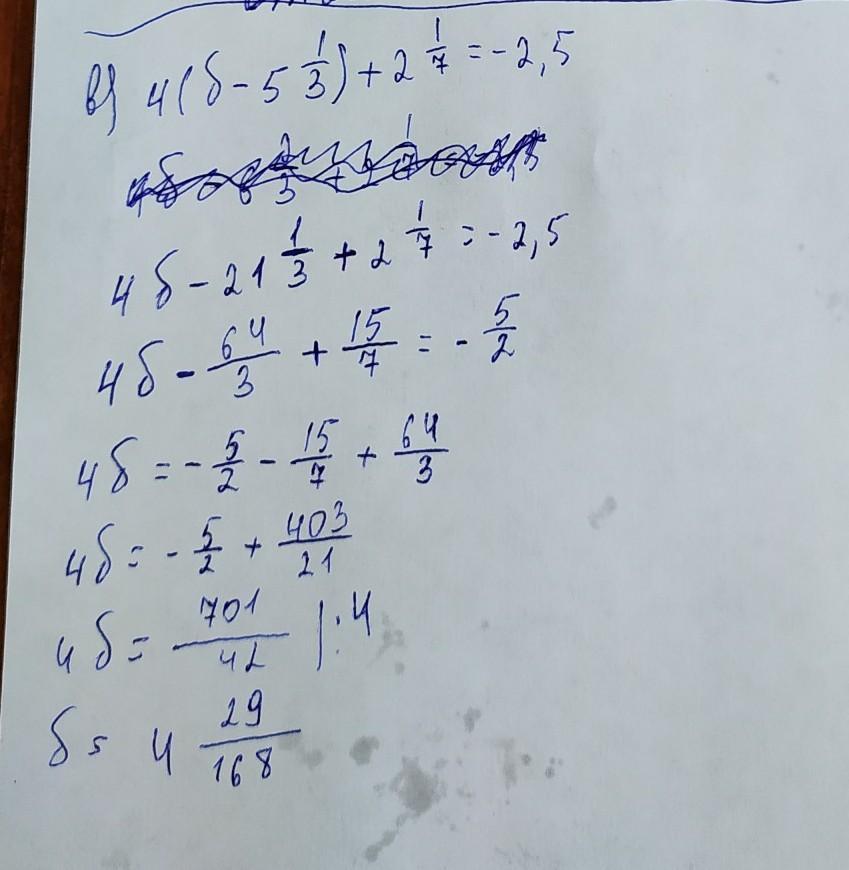 в) 4(б - 5 1/3) + 2 1/7 = -2,5
4б - 21 1/3 + 2 1/7 = -2,5
4б - 64/3 + 15/7 = - 5/2
4б = - 5/2 - 15/7 + 64/3
4б = - 5/2 + 403/21
4б = 701/42 |:4
б = 4 29/168